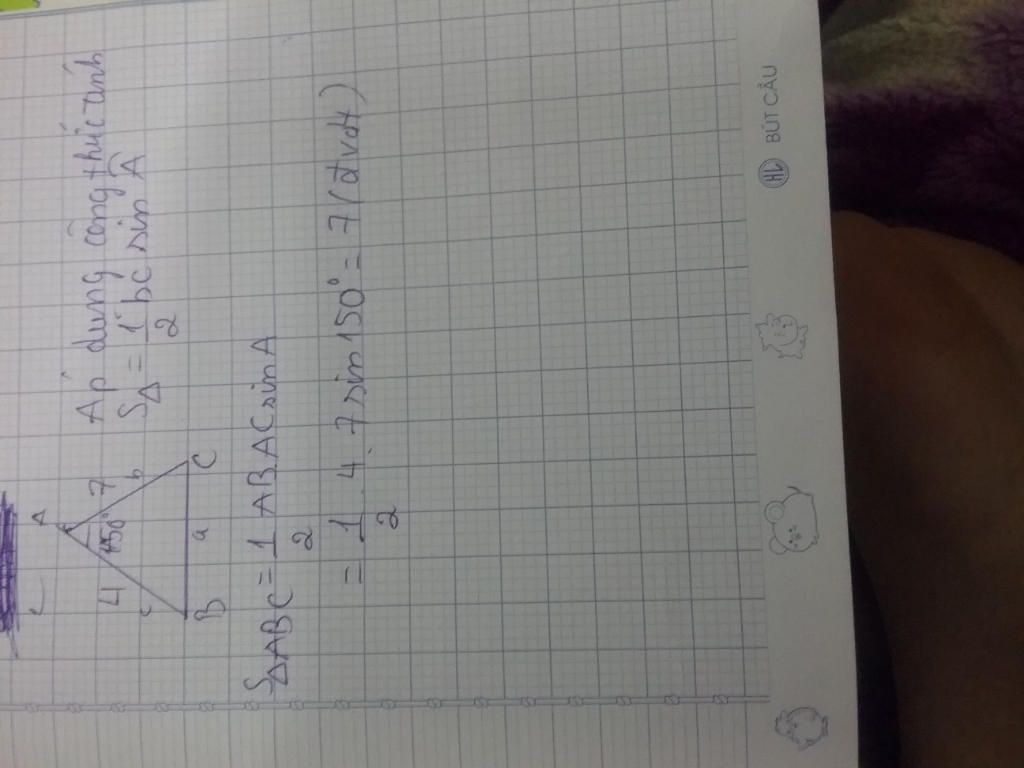 A
4
150°
7
c
b
B
a
C
Áp dụng công thức tính
S∆ = 1/2 bc sin Â
S∆ABC = 1/2 AB.AC sin A
= 1/2 4.7 sin 150° = 7 (đvdt)
BÚT CẦU